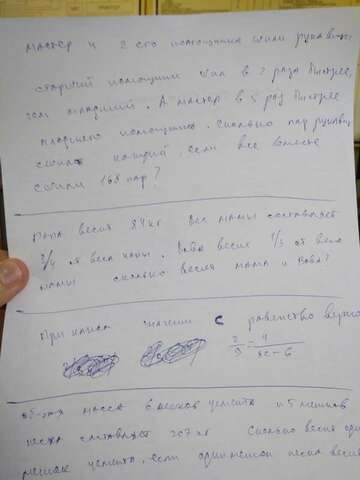 мастер и 2 его помощника шили рукавицы
старший помощник шил в 2 раза быстрее
чем младший. А мастер в 5 раз быстрее
младшего помощника. Сколько пар рукавиц
сшил каждый, если все вместе
сшили 168 пар?
Папа весит 84 кг Вес мамы составляет
3/4 от веса папы. Вова весит 1/3 от веса
мамы сколько весит мама и Вова?
При каких значении с равенство верно
2/3 = 4/9c-6
общая масса 6 мешков цемента и 5 мешков
песка составляет 207 кг Сколько весит один
мешок цемента, если один мешок песка весит